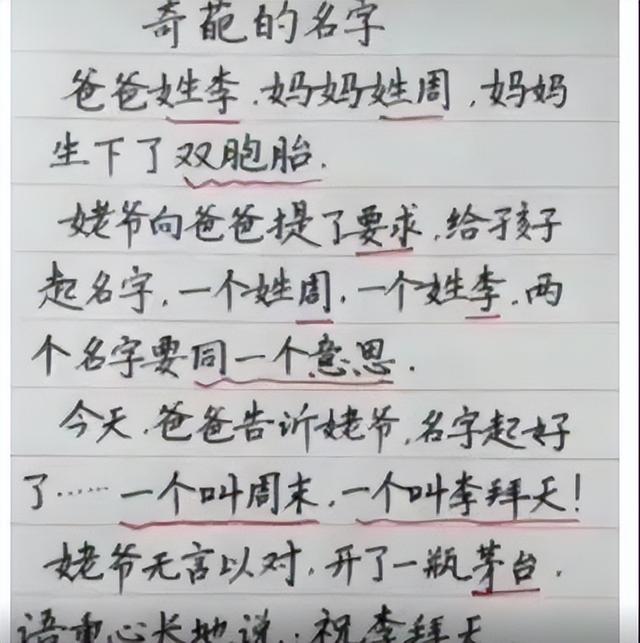 奇葩的名字
爸爸姓李.妈妈姓周,妈妈
生下了双胞胎.
姥爷向爸爸提了要求.给孩子
起名字.一个姓周.一个姓李.两
个名字要同一个意思.
今天.爸爸告诉姥爷,名字起好
了……一个叫周末,一个叫李拜天!
姥爷无言以对,开了一瓶茅台.
语重心长地说:祝李拜天